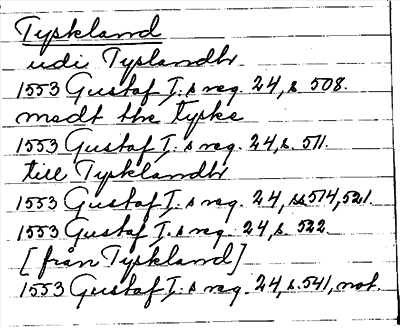 Tyskland
udi Tyslandh
1553 Gustaf I:s reg. 24, s. 508.
medt the tyske
1553 Gustaf I:s reg. 24, s. 511.
till Tysklandh
1553 Gustaf I:s reg. 24, ss 514, 521.
1553 Gustaf I:s reg. 24, s. 522
[från Tyskland]
1553 Gustaf I:s reg. 24, s. 541, not.